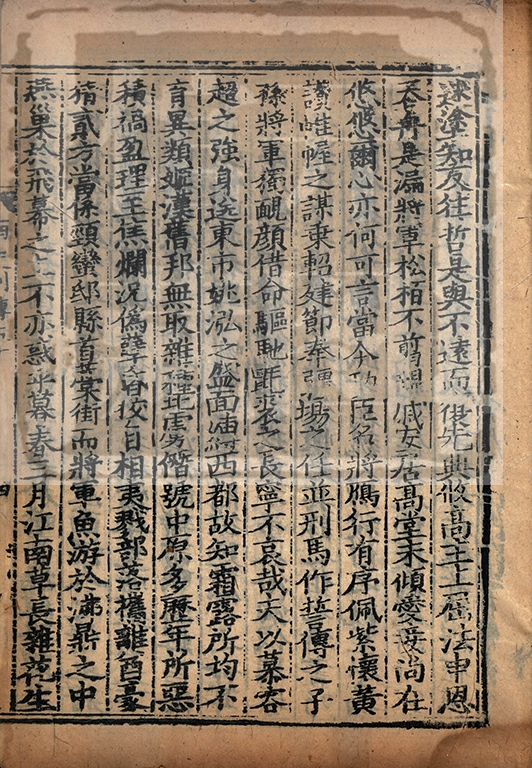 迷塗知反往哲是與不遠而復先典攸高主上屈法申恩
吞舟是漏將軍松柏不翦親戚安居高堂未傾愛妾尚在
悠悠爾心亦何可言當今功臣名將鴈行有序佩紫懷黃
讚帷幄之謀乘軺建節奉疆埸之任並刑馬作誓傳之子
孫將軍獨靦顏借命驅馳氈裘之長寧不哀哉夫以慕容
超之強身送東市姚泓之盛面縛西都故知霜露所均不
育異類姬漢舊邦無取雜種北虜僭號中原多歷年所惡
積禍盈理至焦爛況偽孽昏狡自相夷戮部落攜離酋豪
猜貳方當係頸蠻邸縣首藁街而將軍魚游於沸鼎之中
燕巢於飛幕之上不亦惑乎暮春三月江南草長雜花生